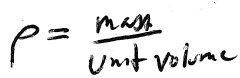 ρ = mass / unit volume